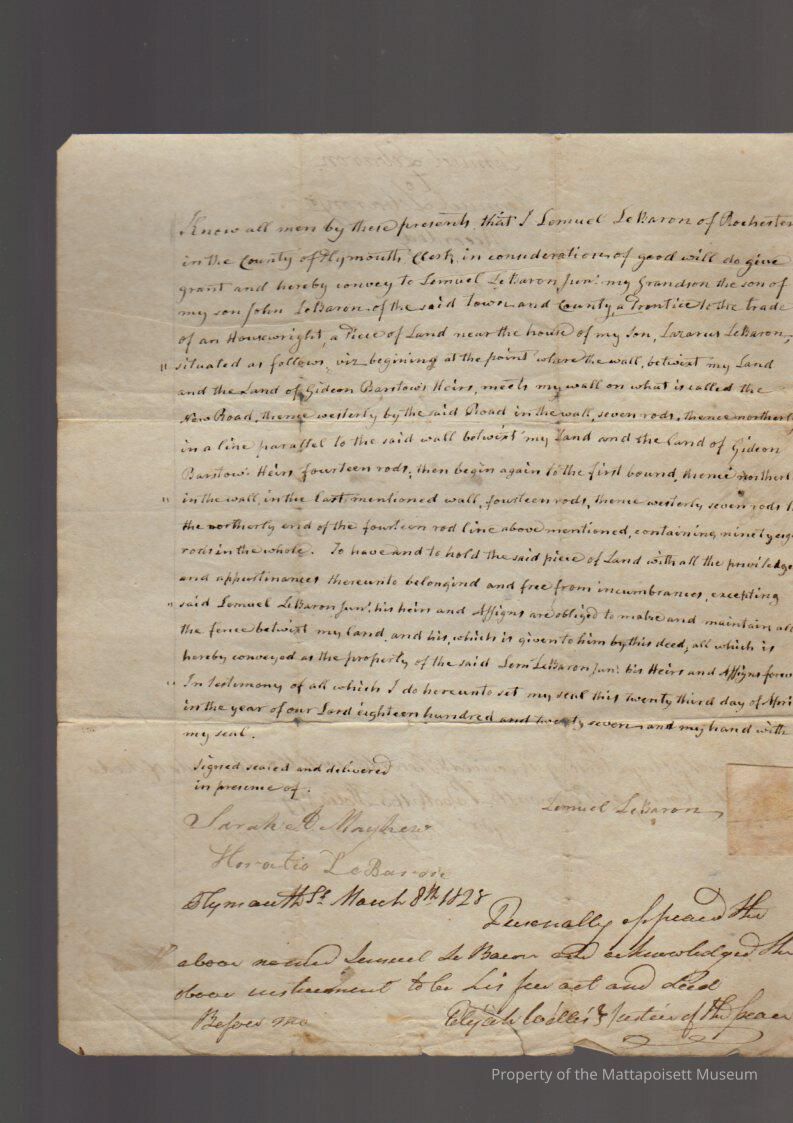 Know all men by these presents, that I Lemuel LeBaron of Rochester
in the County of Plymouth Clerk, in consideration of good will do give
grant and hereby convey to Lemuel LeBaron Junr. my Grandson the son of
my son John LeBaron of the said Town and County, a Prentice to the trade
of an Housewright, a Piece of Land near the house of my Son, Lazarus LeBaron,
" situated as follows, viz begining at the point where the wall, betwixt my Land
and the Land of Gideon Barstow's Heirs, meets my wall on what is called the
New Road, thence westerly by the said Road in the wall, seven rods, thence northerl
in a line parallel to the said wall betwixt my Land and the land of Gideon
Barstow's Heirs fourteen rods, then begin again to the first bound, thence northerl
" in the wall, in the last mentioned wall, fourteen rods, thence westerly seven rods t
the northerly end of the fourteen rod line above mentioned, containing ninety eig
rods in the whole. To have and to hold the said piece of Land with all the priviledge
and appurtinances thereunto belongind and free from incumbrances, excepting
" said Lemuel LeBaron Junr. his heirs and Assigns are obliged to make and maintain all
the fence betwixt my land, and his, which is given to him by this deed, all which is
hereby conveyed as the property of the said Lem. LeBaron Junr. his Heirs and Assigns forev
" In testimony of all which I do hereunto set my seal this twenty third day of Apri
in the year of our Lord eighteen hundred and twenty seven and my hand with
my seal.
Signed sealed and delivered
in presence of.
Lemuel LeBaron
Sarah D. Mayhew
Horatio LeBaron
Plymouth Ss. March 8th 1828
Personally appeared the
above named Lemuel LeBaron and acknowledged the
above instrument to be his free act and deed
Before me Elijah Willis Justice of the peace
Property of the Mattapoisett Museum